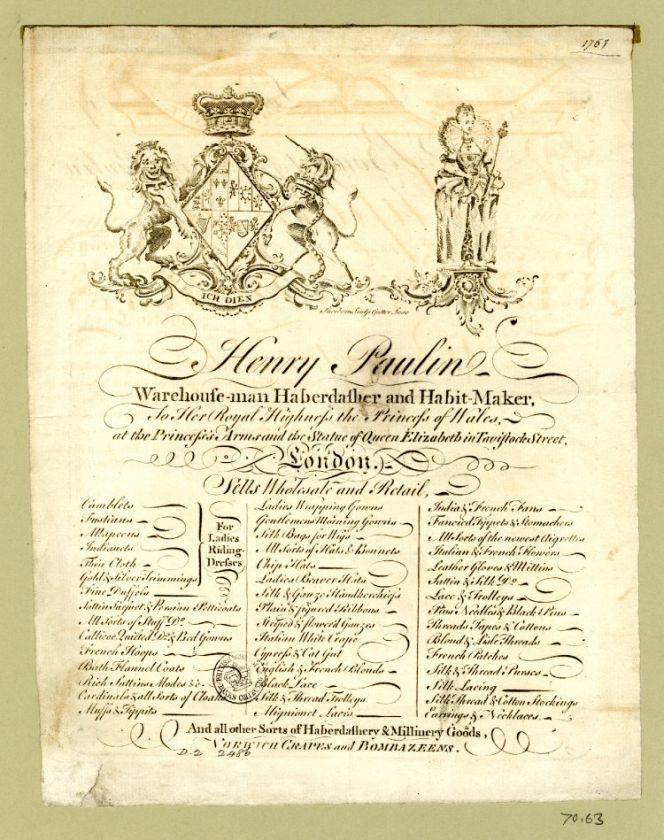 1761
ICH DIEN
Henry Paulin
Warehouſe-man Haberdaſher and Habit-Maker,
To Her Royal Highneſs the Princeſs of Wales,
at the Princeſs's Arms and the Statue of Queen Elizabeth in Taviſtock Street,
London.
Sells Wholesale and Retail,
Camblets
Fustians
Allapeens
Indianets
Thin Cloth
Gold & Silver Trimmings
For
Ladies
Riding-
Dreſſes
Fine Duffels
Sattin Sarſnet & Persian Petticoats
All Sorts of Stuff Do.
Callicoe Quilted Do. & Bed Gowns
French Hoops
Bath Flannel Coats
Rich Sattins Modes &c.
Cardinals & all Sorts of Cloaks
Muffs & Tippits
Ladies Wrapping Gowns
Gentlemens Morning Gowns
Silk Bags for Wigs
All Sorts of Hats & Bonnets
Chip Hats
Ladies Beaver Hats
Silk & Gauze Handkerchiefs
Plain & figured Ribbons
Striped & flowered Gauzes
Italian White Crape
Cypreſs & Cat Gut
English & French Blonds
Black Lace
Silk & Thread Trolleys
Mignionet Laces
India & French Fans
Fancied Tippets & Stomachers
All Sorts of the newest Aigrettes
Italian & French Flowers
Leather Gloves & Mittins
Sattin & Silk Do.
Lace & Trolleys
Pins Needles & Black Pins
Threads Tapes & Cottons
Blond & Lisle Threads
French Patches
Silk & Thread Purses
Silk Lacing
Silk Thread & Cotton Stockings
Earrings & Necklaces
And all other Sorts of Haberdaſhery & Millinery Goods,
NORWICH CRAPES and BOMBAZEENS.
D-2 2486
70.63